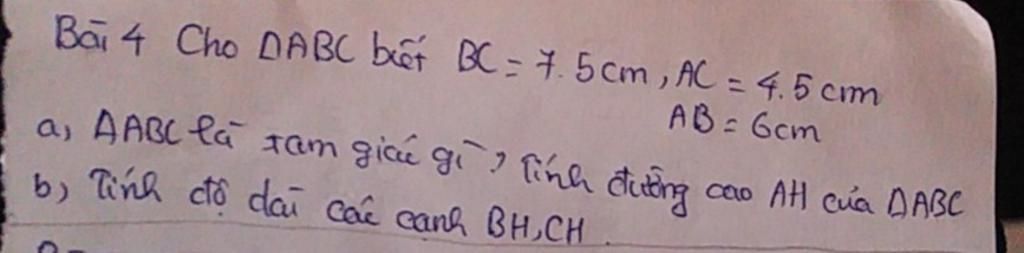 Bài 4 Cho ΔABC biết BC = 7.5cm, AC = 4.5cm
AB = 6cm
a, ΔABC là tam giác gì, Tính đường cao AH của ΔABC
b, Tính độ dài các cạnh BH, CH.